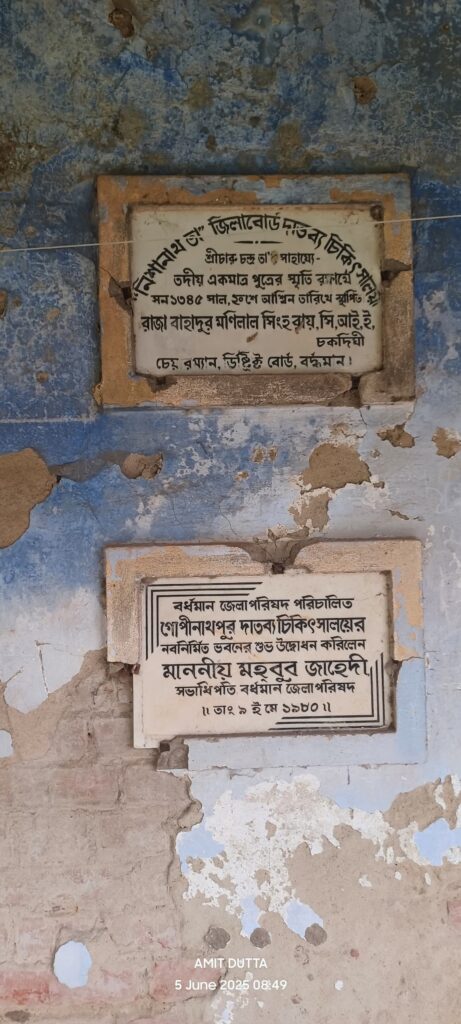 "নিশানাথ তা" জিলাবোর্ড দাতব্য চিকিৎসালয়
শ্রীচারু চন্দ্র তা'র সাহায্যে-
তদীয় একমাত্র পুত্রের স্মৃতি রক্ষার্থে
সন ১৩৪৫ সাল, ২০শে আশ্বিন তারিখে স্থাপিত
রাজা বাহাদুর মণিলাল সিংহ রায়, সি, আই, ই,
চকদিঘী
চেয়ারম্যান, ডিষ্ট্রিক্ট বোর্ড, বর্দ্ধমান।
বর্ধমান জেলা পরিষদ পরিচালিত
গোপীনাথপুর দাতব্য চিকিৎসালয়ের
নবনির্মিত ভবনের শুভ উদ্বোধন করিলেন
মাননীয় মহবুব জাহেদী
সভাধিপতি বর্ধমান জেলা পরিষদ
॥ তাং ৯ ই মে ১৯৮০ ॥
AMIT DUTTA
5 June 2025 08:49